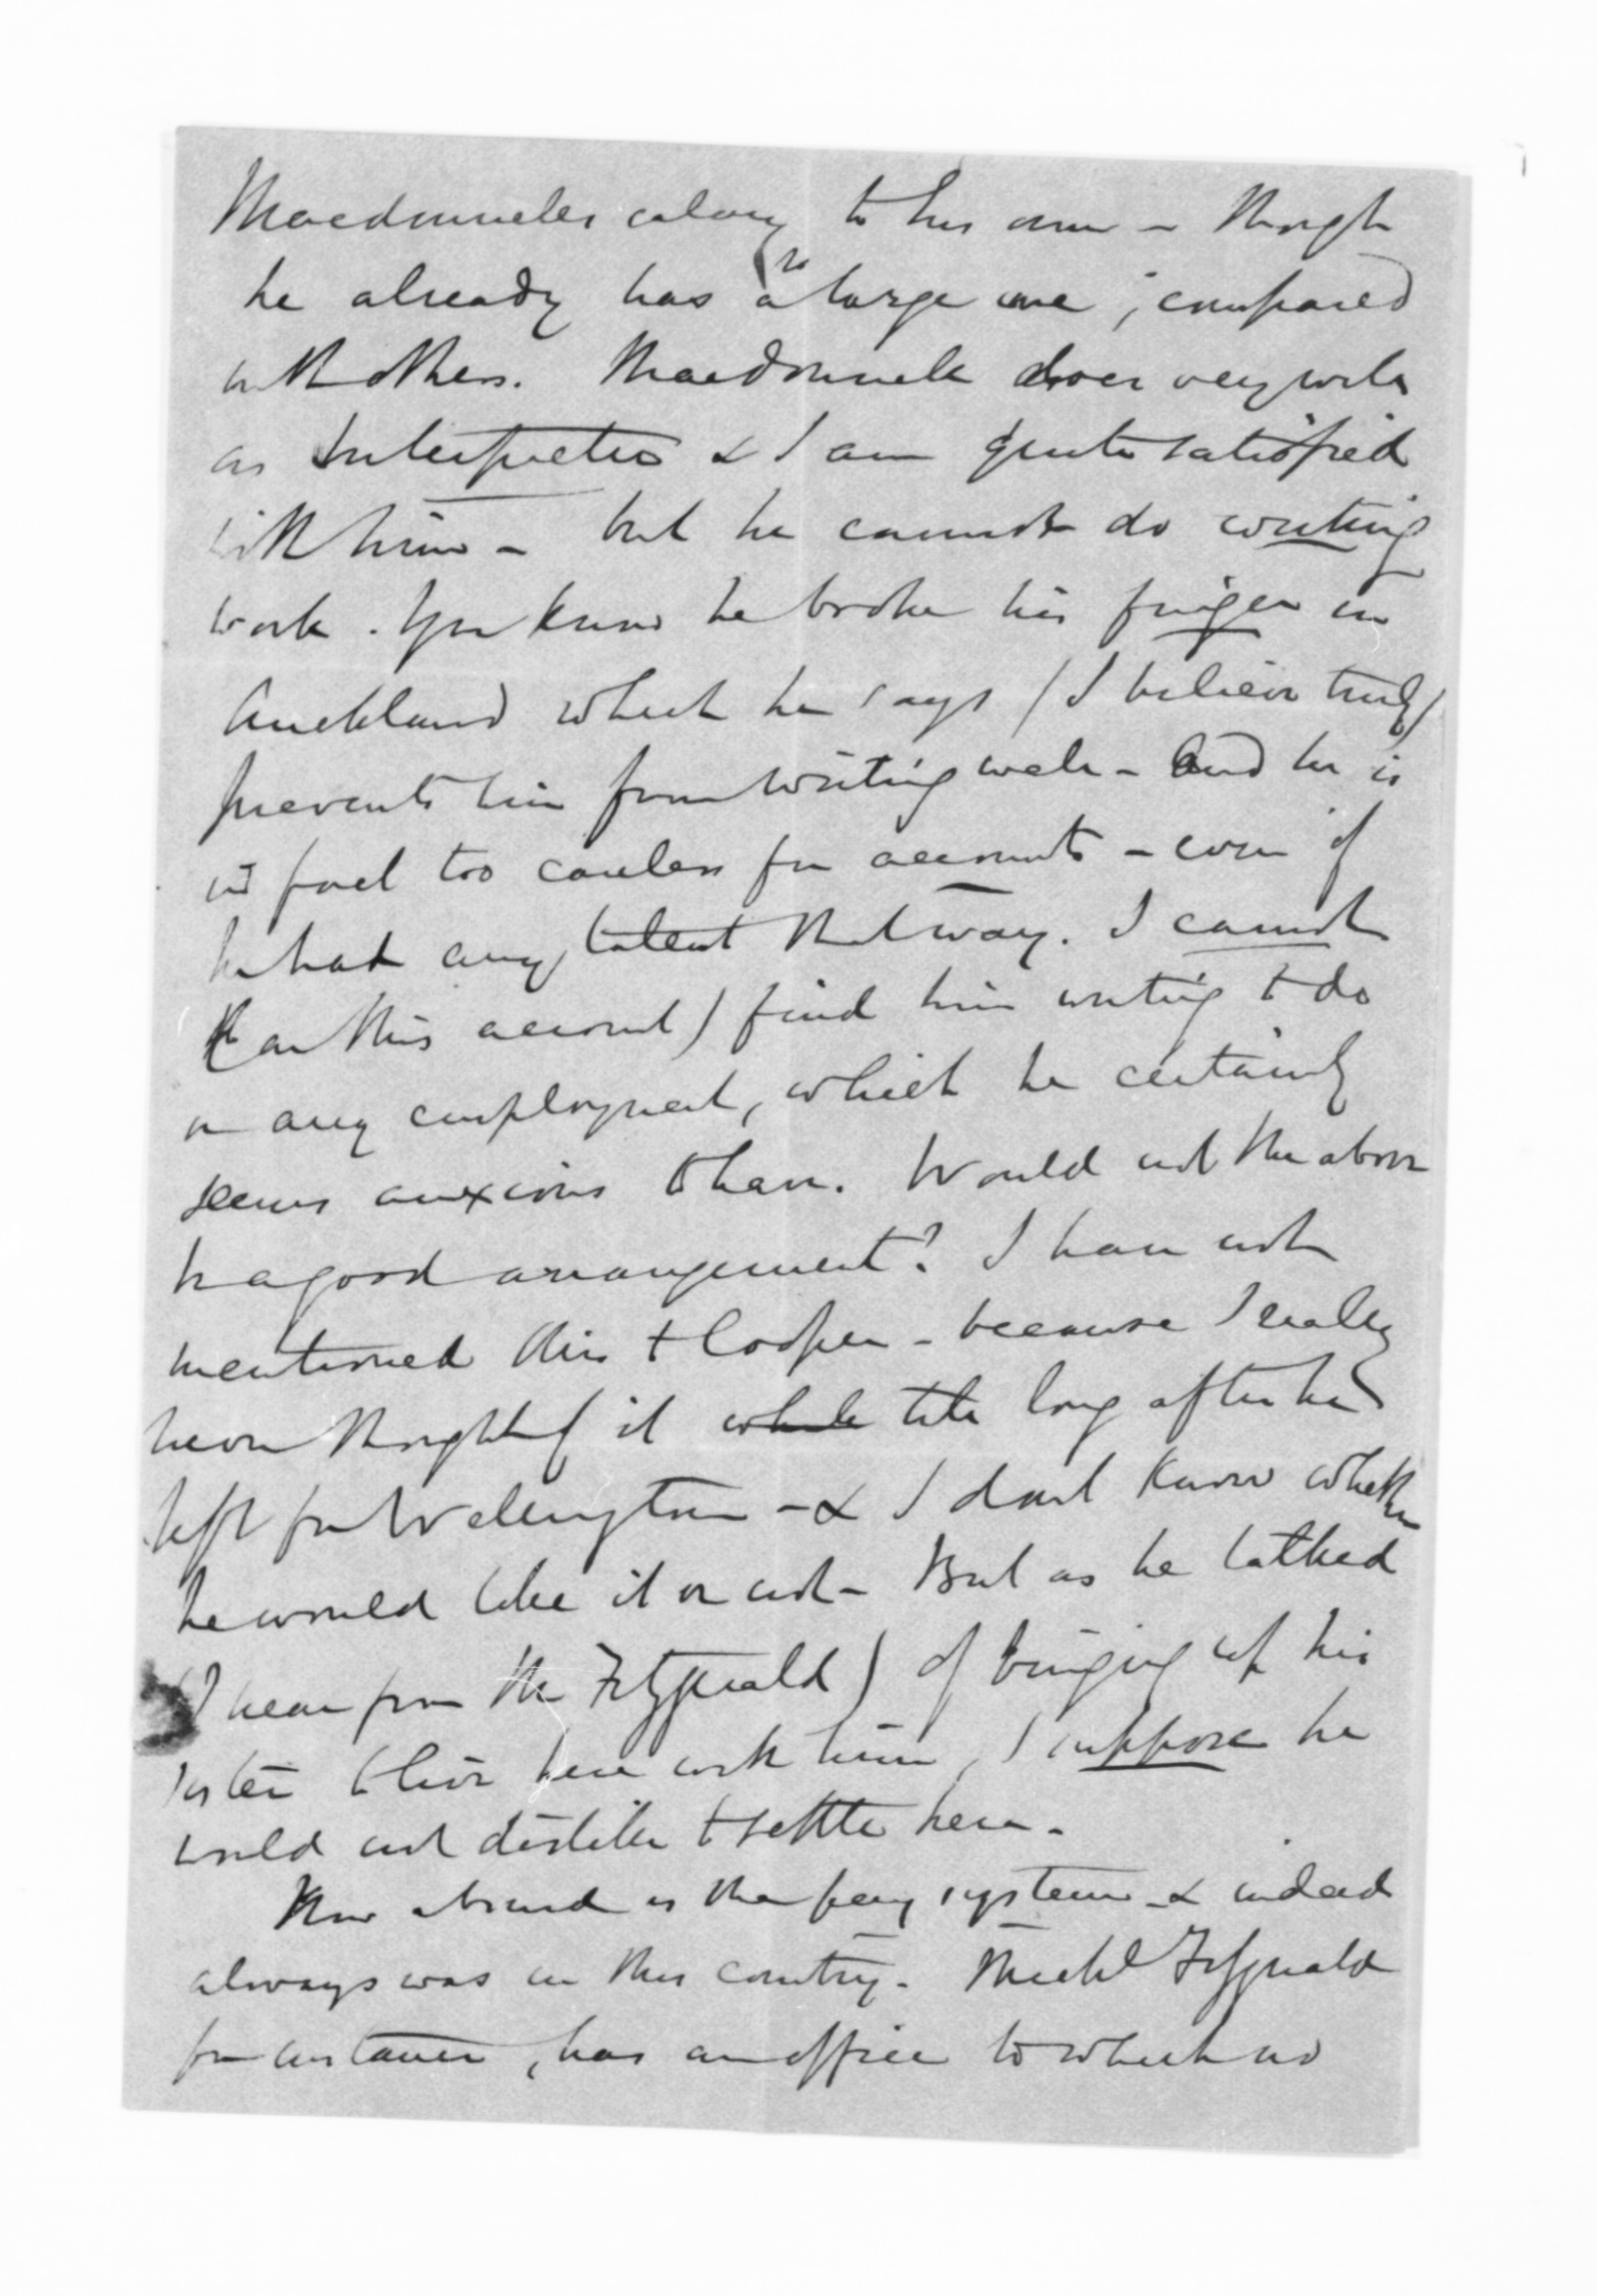 Macdonnells salary to his own – though
he already has a large one, compared
with others. Macdonnell does very well
as Interpreter & I am quite satisfied
with him – but he cannot do writing
work. You know he broke his finger in
Auckland which he says (I believe truly)
prevents him from writing well – And he is
in fact too careless for accounts – even if
he had any talent that way. I cannot
(on this account) find him writing to do
or any employment, which he certainly
seems anxious to have. Would not the above
be a good arrangement? I have not
mentioned this to Cooper – because I really
never thought of it till long after he
left for Wellington – & I dont know whether
he would like it or not – But as he talked
(I hear from Fitzgerald) of bringing up his
sister to live here with him, I suppose he
would not dislike to settle here.
How is the system & indeed
always was in this country. Michl Fitzgerald
for instance, has an office to which no